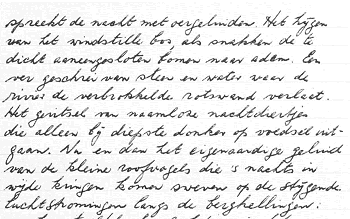 spreekt de nacht met oergeluiden. Het hijgen
van het windstille bos, als snakken de te
dicht aaneengesloten bomen naar adem. Een
ver geschrei van steen en water waar de
rivier de verbrokkelde rotswand verlaat.
Het geritsel van naamloze nachtdiertjes
die alleen bij diepste donker op voedsel uit-
gaan. Nu en dan het eigenaardige geluid
van de kleine roofvogels die 's nachts in
wijde kringen komen zweven op de stijgende
luchtstromingen langs de berghellingen: